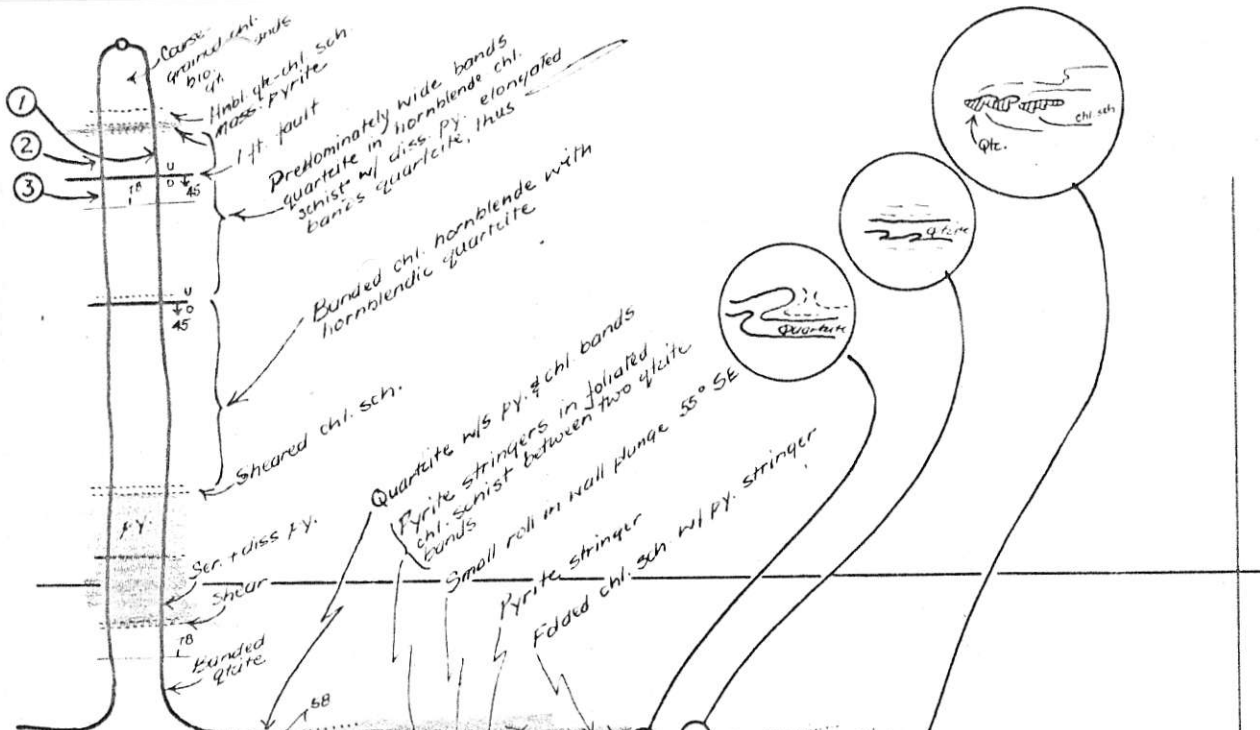 Coarse-
grained chl.
bio.
qt.
Hnbl. qtz-chl sch.
Mass. pyrite
1 ft. fault
Predominately wide bands
quartzite in hornblende chl.
schist w/ diss. py. elongated
bands quartzite, thus
1
2
3
U
D
45
78
U
D
45
Banded chl. hornblende with
hornblendic quartzite
Sheared chl. sch.
PY.
Ser. + diss py.
Shear
78
Banded
qtzite
58
Quartzite w/s py. & chl. bands
Pyrite stringers in foliated
chl. schist between two qtzite
bands
Small roll in wall plunge 55° SE
Pyrite stringer
Folded chl. sch. w/ py. stringer
Quartzite
qtzite
chl. sch
Qtz.